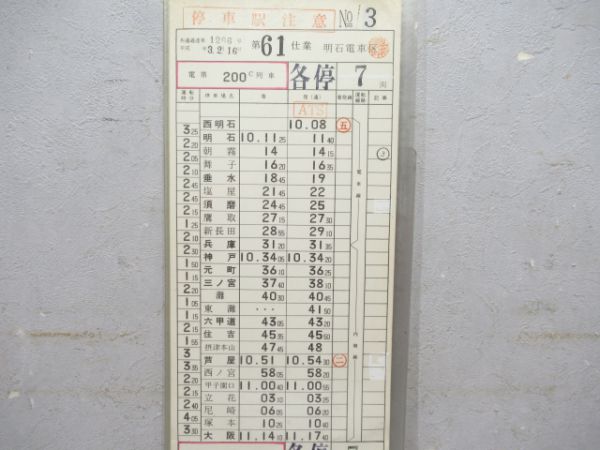 停車駅注意 No. 3
1206号
3.2.16 第61仕業 明石電車区
電車 200C列車 各停 7両
運転時分 停車場名 着 発(通) 着発線 記事
ATS
西明石 10.08 五
3 25 明石 10.11 25 11 40
2 20 朝霧 14 14 15 3
2 20 舞子 16 20 16 35
2 10 垂水 18 45 19
2 45 塩屋 21 45 22
2 45 須磨 24 45 25
2 15 鷹取 27 15 27 30
新長田 28 55 29 10
2 10 兵庫 31 20 31 35
2 30 神戸 10.34 05 10.34 20
1 50 元町 36 10 36 25
1 15 三ノ宮 37 40 38 10
灘 40 30 40 45
東灘 ・・・ 41 50
六甲道 43 05 43 20
2 15 住吉 45 35 45 55
摂津本山 47 45 48
3 芦屋 10.51 10.54 30 二
3 35 西ノ宮 58 05 58 20
甲子園口 11.00 40 11.00 55
2 15 立花 03 10 03 25
2 40 尼崎 06 05 06 20
4 05 塚本 10 25 10 40
3 30 大阪 11.14 10 11.17 40
電車線
内側線
各停 7